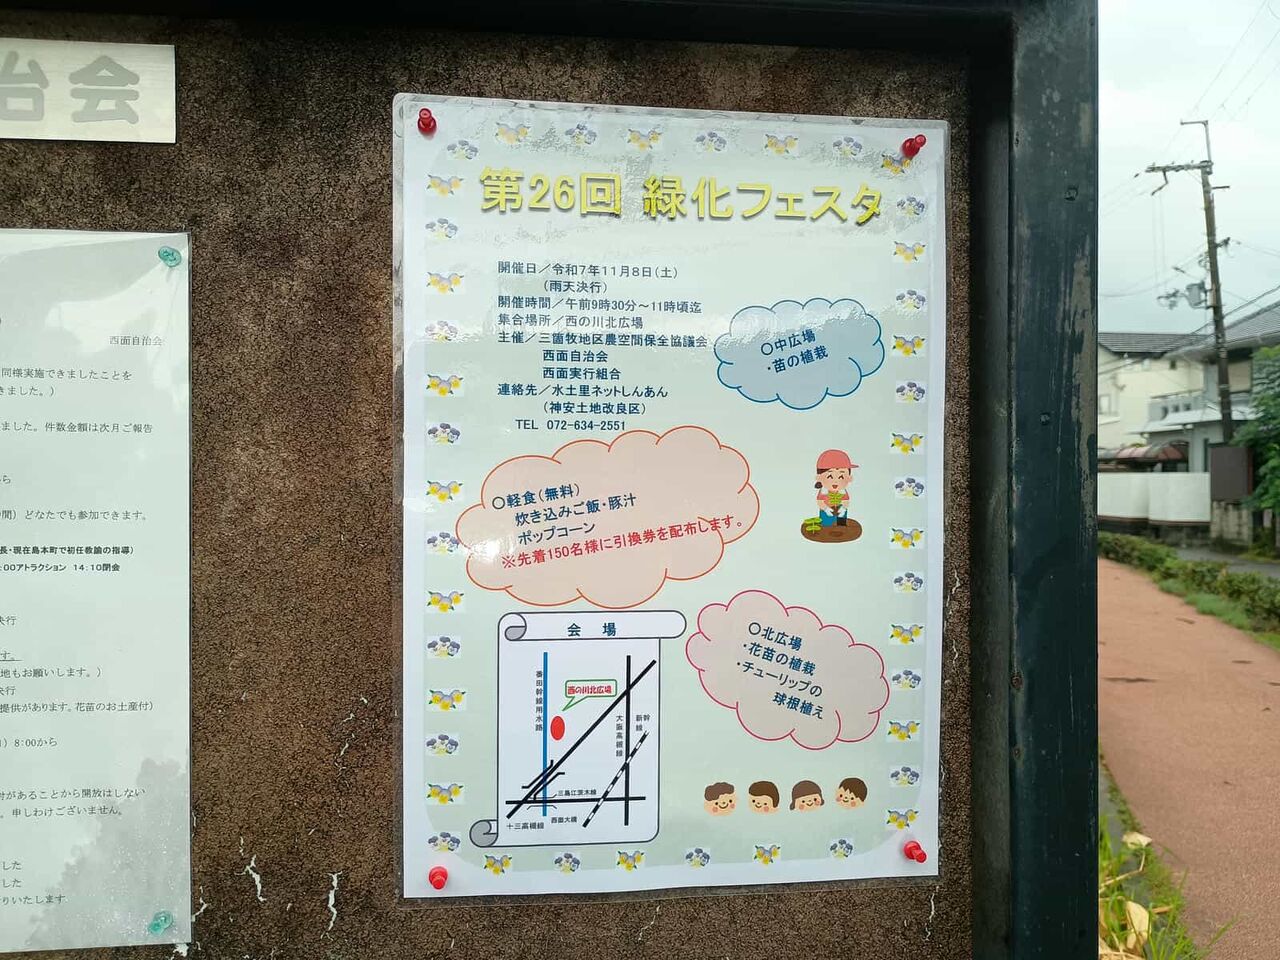 治会
西面自治会
同様実施できましたことを
きました。）
ました。件数金額は次月ご報告
から
間）どなたでも参加できます。
長・現在島本町で初任教諭の指導）
:00アトラクション 14:10閉会
決行
す。
地もお願いします。）
決行
提供があります。花苗のお土産付）
）8:00から
付があることから開放はしない
。申しわけございません。
した
した
りいたします
第26回 緑化フェスタ
開催日／令和7年11月8日（土）
（雨天決行）
開催時間／午前9時30分～11時頃迄
集合場所／西の川北広場
主催／三箇牧地区農空間保全協議会
西面自治会
西面実行組合
連絡先／水土里ネットしんあん
（神安土地改良区）
TEL 072-634-2551
〇中広場
・苗の植栽
〇軽食（無料）
炊き込みご飯・豚汁
ポップコーン
※先着150名様に引換券を配布します。
〇北広場
・花苗の植栽
・チューリップの
球根植え
会 場
番田幹線用水路
西の川北広場
大阪高槻線
新幹線
三島江茨木線
十三高槻線
西面大橋